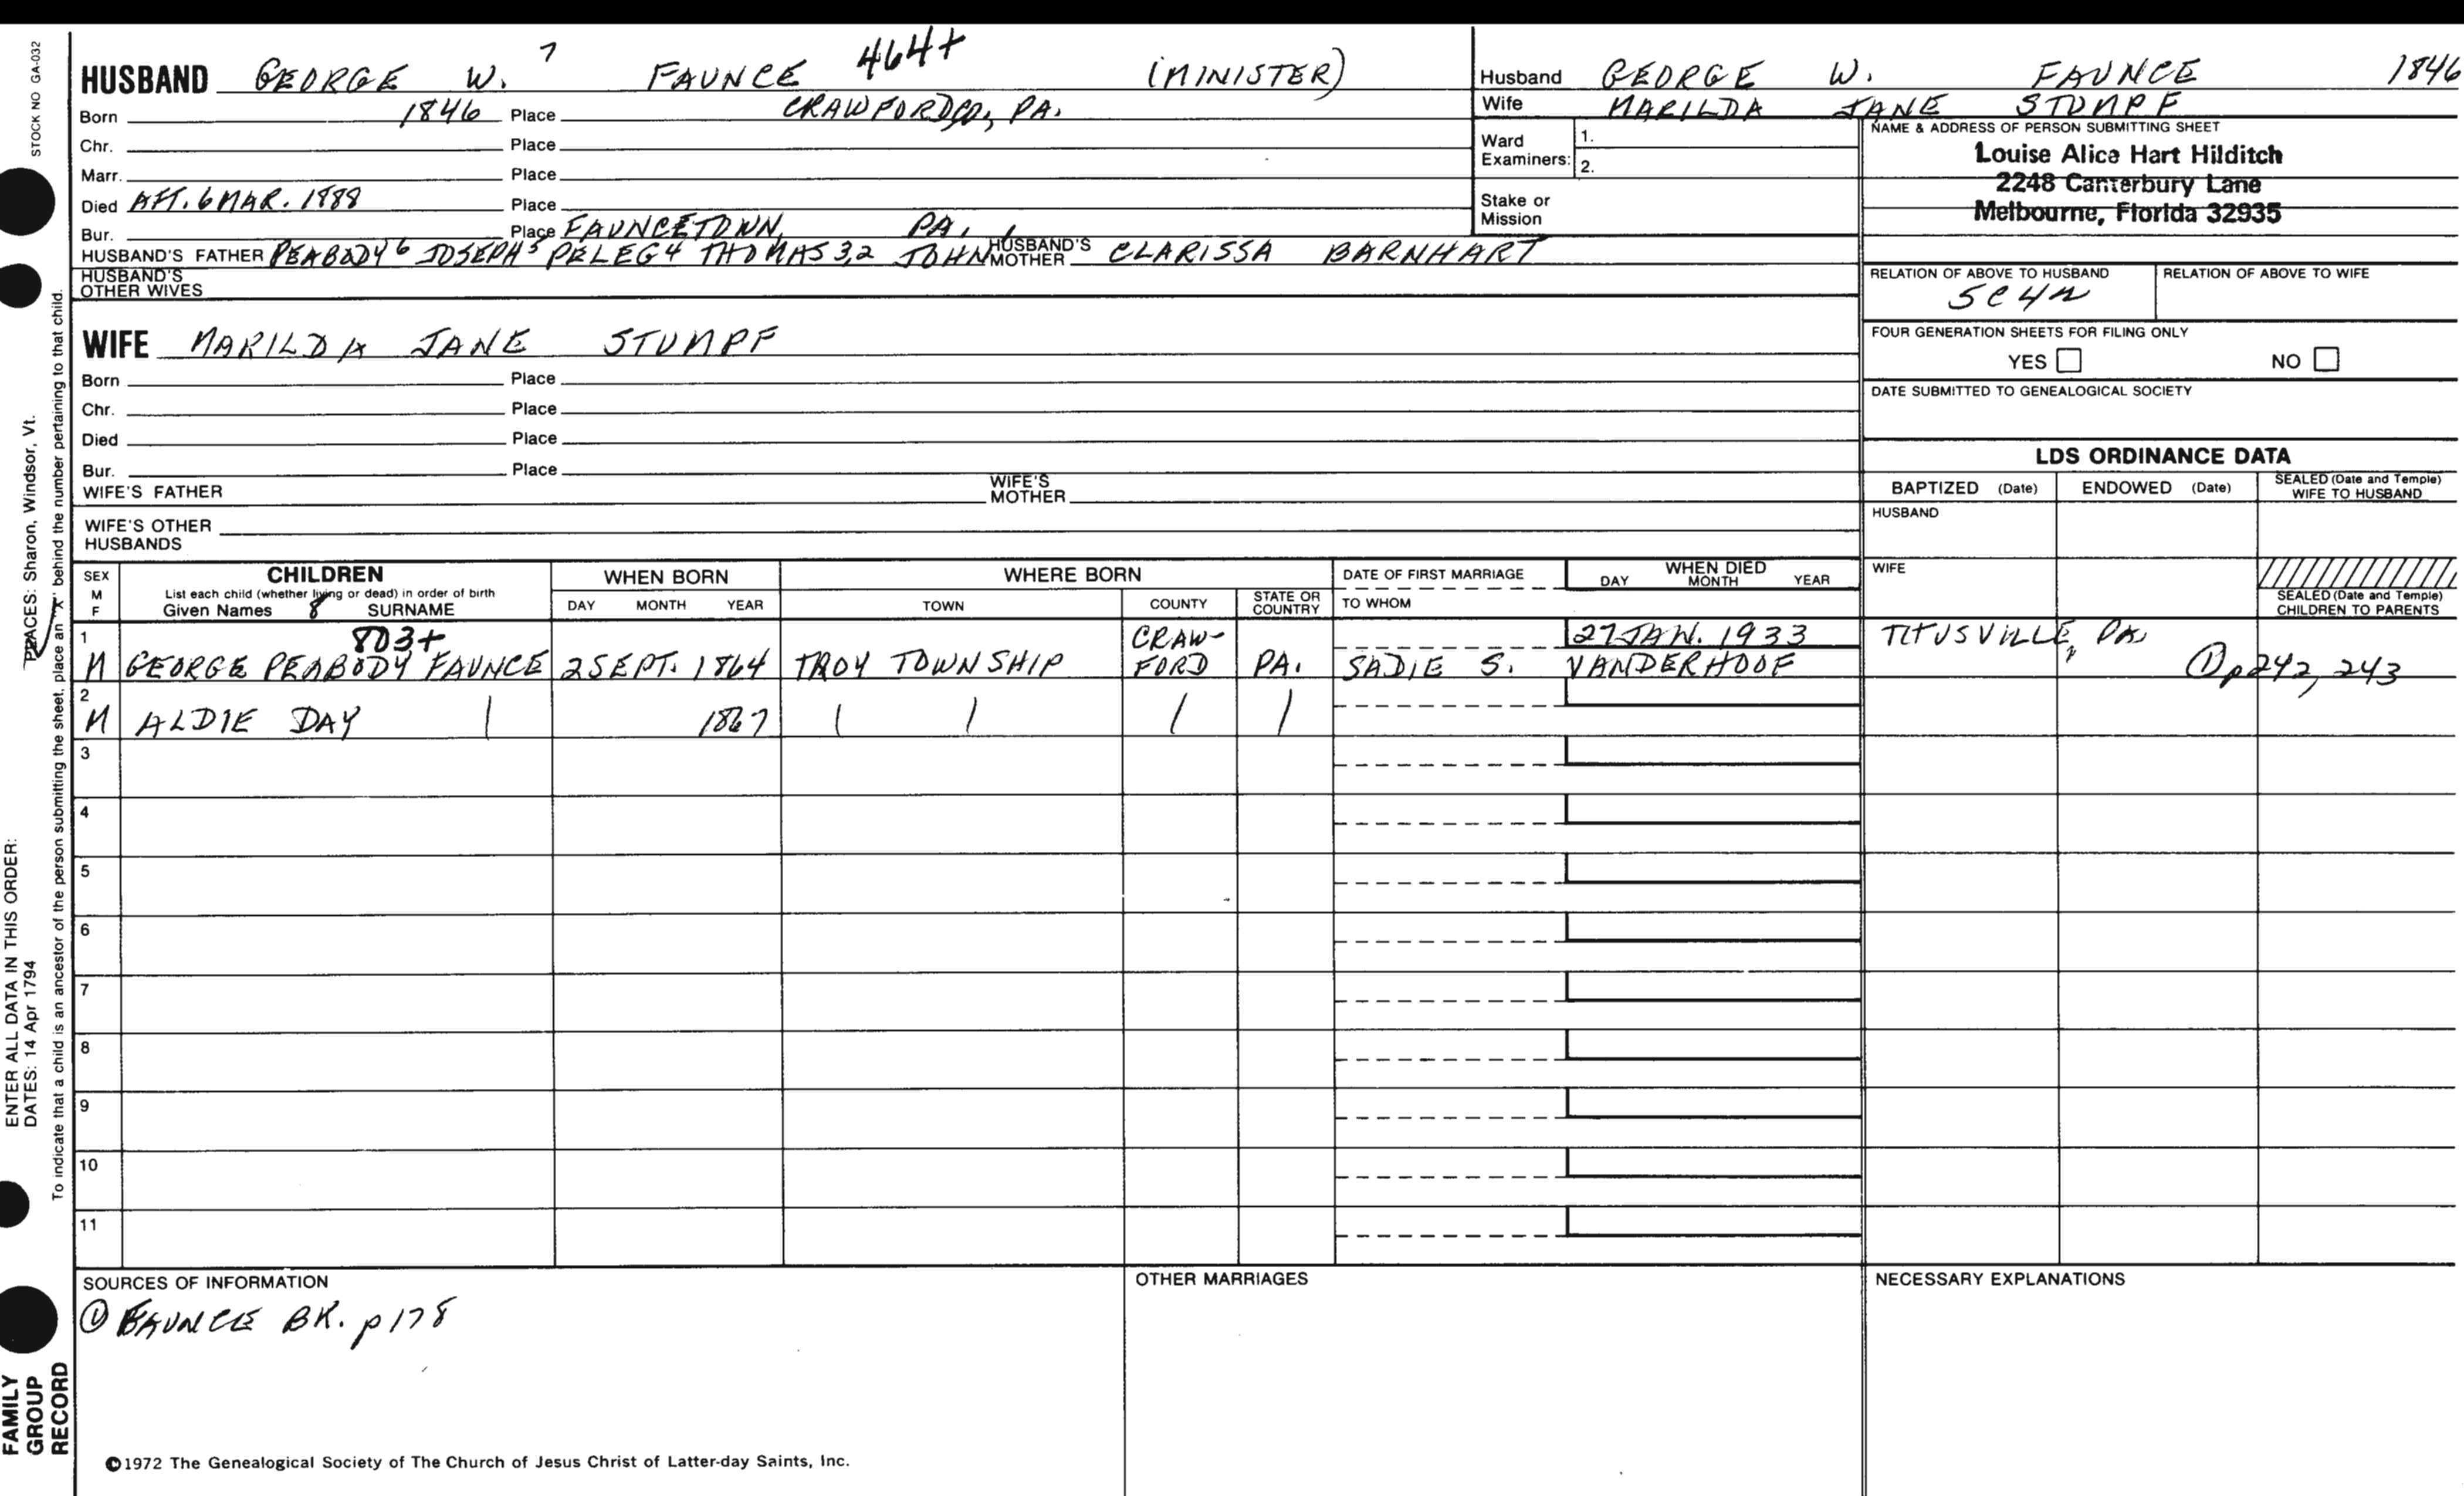 STOCK NO GA-032
HUSBAND GEORGE W. 7 FAUNCE 464+ (MINISTER)
Born 1846 Place CRAWFORD CO., PA.
Chr. Place
Marr. Place
Died AFT. 6 MAR. 1888 Place
Bur. Place FAUNCETOWN, PA.
HUSBAND'S FATHER PEABODY 6 JOSEPH 5 PELEG 4 THOMAS 3,2 JOHN 1 HUSBAND'S MOTHER CLARISSA BARNHART
HUSBAND'S OTHER WIVES
WIFE MARILDA JANE STUMPF
Born Place
Chr. Place
Died Place
Bur. Place
WIFE'S FATHER WIFE'S MOTHER
WIFE'S OTHER HUSBANDS
Husband GEORGE W. FAUNCE 1846
Wife MARILDA JANE STUMPF
Ward Examiners: 1.
2.
Stake or Mission
NAME & ADDRESS OF PERSON SUBMITTING SHEET
Louise Alice Hart Hilditch
2248 Canterbury Lane
Melbourne, Florida 32935
RELATION OF ABOVE TO HUSBAND RELATION OF ABOVE TO WIFE
5C4R
FOUR GENERATION SHEETS FOR FILING ONLY
YES NO
DATE SUBMITTED TO GENEALOGICAL SOCIETY
LDS ORDINANCE DATA
BAPTIZED (Date) ENDOWED (Date) SEALED (Date and Temple) WIFE TO HUSBAND
HUSBAND
WIFE
SEALED (Date and Temple) CHILDREN TO PARENTS
SEX M F CHILDREN WHEN BORN WHERE BORN DATE OF FIRST MARRIAGE WHEN DIED
List each child (whether living or dead) in order of birth
Given Names 8 SURNAME DAY MONTH YEAR TOWN COUNTY STATE OR COUNTRY TO WHOM DAY MONTH YEAR
1 803+ CRAW- 27 JAN. 1933 TITUSVILLE, PA.
M GEORGE PEABODY FAUNCE 2 SEPT. 1864 TROY TOWNSHIP FORD PA. SADIE S. VANDERHOOF ① p 242, 243
2
M ALDIE DAY | 1867 | | | |
3
4
5
6
7
8
9
10
11
SOURCES OF INFORMATION
① FAUNCE BK. p 178
OTHER MARRIAGES
NECESSARY EXPLANATIONS
©1972 The Genealogical Society of The Church of Jesus Christ of Latter-day Saints, Inc.
ENTER ALL DATA IN THIS ORDER:
DATES: 14 Apr 1794 PLACES: Sharon, Windsor, Vt.
To indicate that a child is an ancestor of the person submitting the sheet, place an "X" behind the number pertaining to that child.
FAMILY
GROUP
RECORD